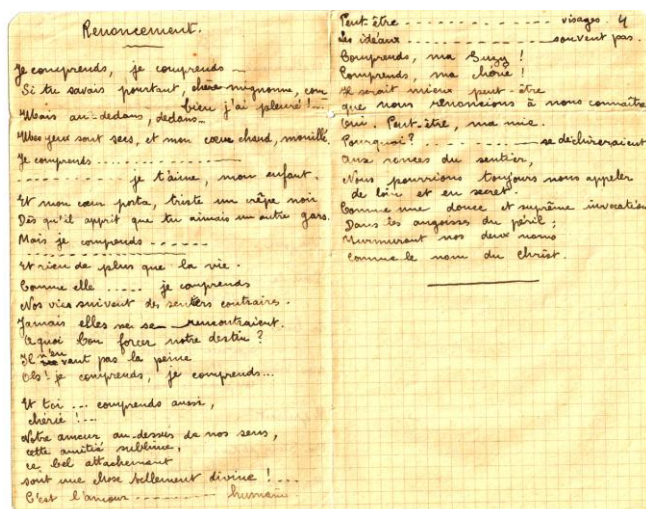 Renoncement.
Je comprends, je comprends
Si tu savais pourtant, chère mignonne, com
bien j'ai pleuré !...
Mais au-dedans, dedans...
Mes yeux sont secs, et mon cœur chaud, mouillé.
Je comprends ..............
.............. je t'aime, mon enfant.
Et mon cœur porta, triste un crêpe noir
Dès qu'il apprit que tu aimais un autre gars.
Mais je comprends ......
Et rien de plus que la vie.
Comme elle ..... je comprends
Nos vies suivent des sentiers contraires.
Jamais elles ne se rencontraient.
A quoi bon forcer notre destin ?
Il n'en vaut pas la peine
Oh ! je comprends, je comprends...
Et toi ... comprends aussi,
chérie !...
Notre amour au-dessus de nos sens,
cette amitié sublime,
ce bel attachement
sont une chose tellement divine !...
C'est l'amour .......... humaine.
Peut-être .............. visages. 4
Les idéaux .............. souvent pas.
Comprends, ma Suzy !
Comprends, ma choüe !
Il serait mieux peut-être
que nous renoncions à nous connaître
Oui. Peut-être, ma mie.
Pourquoi ? .......... se déchireraient
Aux ronces du sentier,
Nous pourrions toujours nous appeler
de loin et en secret
Comme une douce et suprême invocation
Dans les angoisses du péril ;
Murmurant nos deux noms
Comme le nom du Christ.